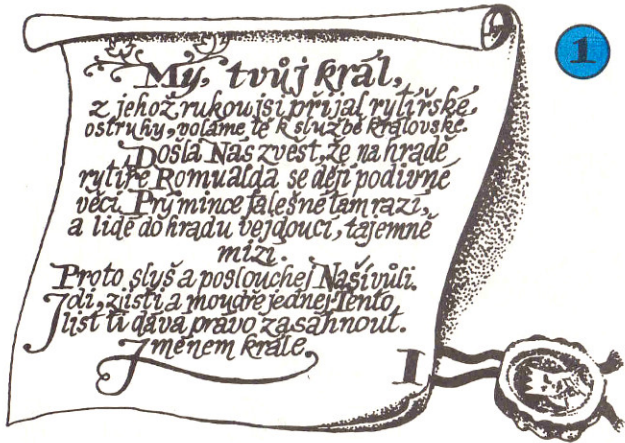 1
My, tvůj král,
z jehož rukou jsi přijal rytířské
ostruhy, voláme tě k službě královské.
Došla Nás zvěst, že na hradě
rytíře Romualda se dějí podivné
věci. Prý mince falešné tam razí,
a lidé do hradu vejdoucí, tajemně
mizí.
Proto slyš a poslouchej Naši vůli.
Jdi, zjisti a moudře jednej. Tento
list ti dává právo zasáhnout.
Jménem krále.
I